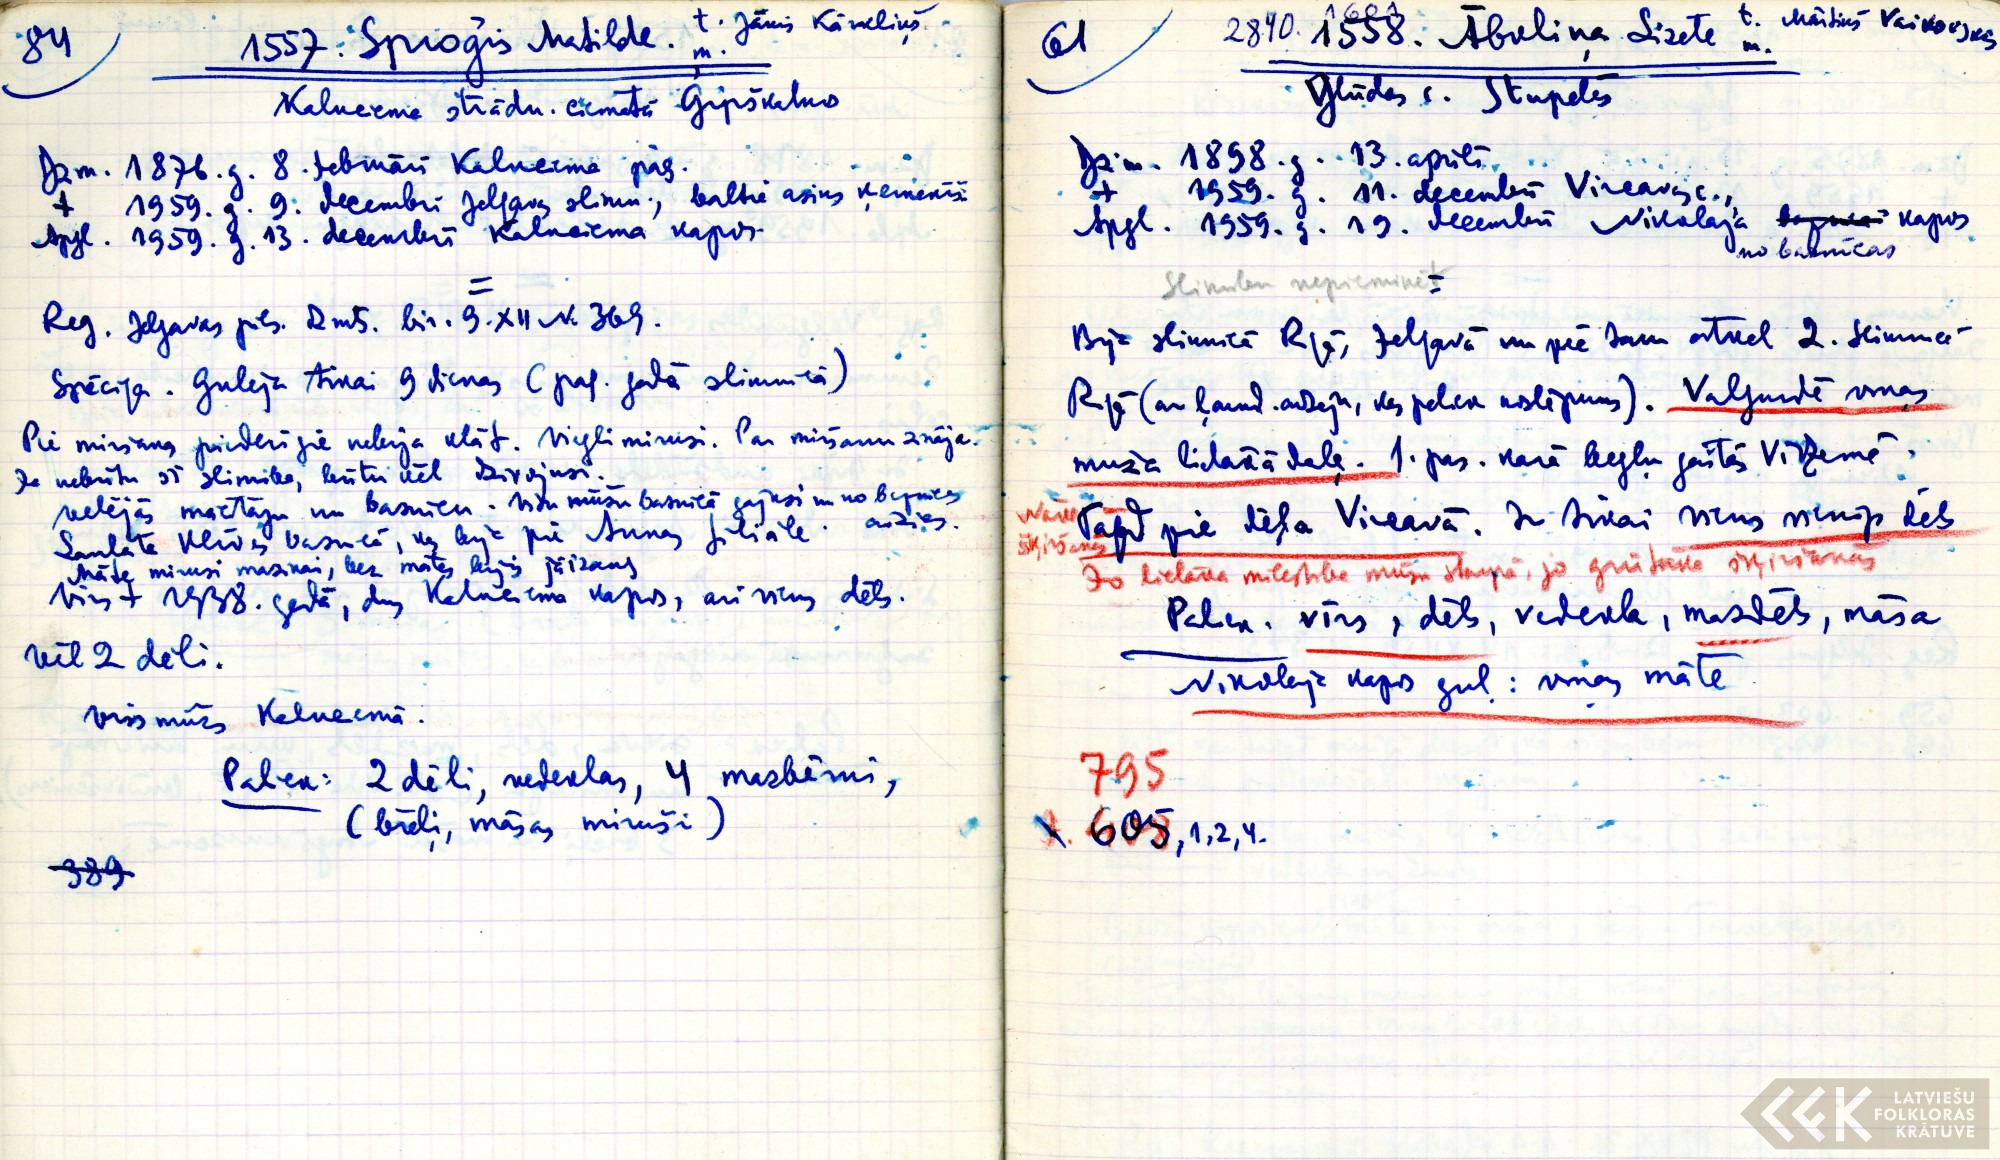 84
1557. Sproģis Matilde. t. Jānis Kārkliņš
m.
Kalnciema strādn. ciematā Ģipškalno
Dzim. 1876. g. 8. februārī Kalnciema pag.
+ 1959. g. 9. decembrī Jelgavas slimn., baltie asins ķermenīši
Apgl. 1959. g. 13. decembrī Kalnciema kapos
=
Reg. Jelgavas pils. Dzmts. bir. 9. XII N. 369.
Spēcīga. Gulēja tikai 9 dienas (pag. gadā slimnīcā)
Pie miršanas piederīgie nebija klāt. Viegli mirusi. Par miršanu zināja.
Ja nebūtu šī slimība, būtu vēl dzīvojusi.
vēlējās mācītāju un baznīcu. Visu mūžu baznīcā gājusi un no baznīcas
aizies.
Laulāta Klīves baznīcā, kas bija pie Annas filiāle.
Māte mirusi mazinai, bez mātes bijis jāizaug
Vīrs + 1938. gadā, dus Kalnciema kapos, arī viens dēls.
vēl 2 dēli.
viss mūžs Kalnciemā.
Paliek: 2 dēli, vedeklas, 4 mazbērni,
(brāļi, māsas miruši)
389
61
2840. 1558. Āboliņa Lizete t. Mārtiņš
m.
Glūdas c. Stupelēs
Dzim. 1898. g. 13. aprīlī
+ 1959. g. 11. decembrī Vircavas c.,
Apgl. 1959. g. 19. decembrī Nikolaja kapos
no baznīcas
Slimību nepieminēt =
Bija slimnīcā Rīgā, Jelgavā un pie tam atkal 2. slimnīcā
Rīgā (ar ļaund. audzēju, kas paliek noslēpums). Valgundē viņas
mūža lielākā daļa. 1. pas. karā bēgļu gaitās Vidzemē.
Nāve Tāpat pie dēla Vircavā. Ir tikai viens vienīgs dēls
šķiršanās
Jo lielāka mīlestība mūsu starpā, jo grūtāka šķiršanās
Paliek. vīrs, dēls, vedekla, mazdēls, māsa
Nikolaja kapos gul: viņas māte
795
X. 605, 1, 2, 4.
LATVIEŠU
FOLKLORAS
KRĀTUVE